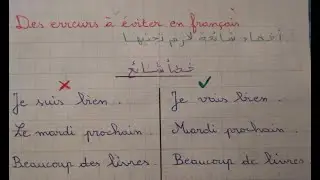 Des erreurs à éviter en français
أخطاء شائعة لازم نتجنبها
خطأ شائع
Je suis bien. Je vais bien.
Le mardi prochain. Mardi prochain.
Beaucoup des livres. Beaucoup de livres